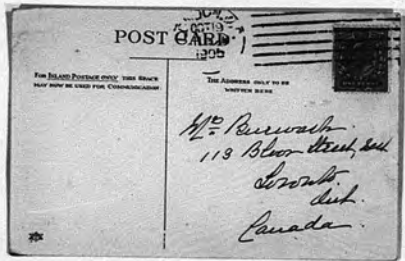 POST CARD.
OCT 19
1905
FOR INLAND POSTAGE ONLY THIS SPACE
MAY NOW BE USED FOR COMMUNICATION
THE ADDRESS ONLY TO BE
WRITTEN HERE
Burwash.
113 Bloor Street,
Toronto.
Ont.
Canada.